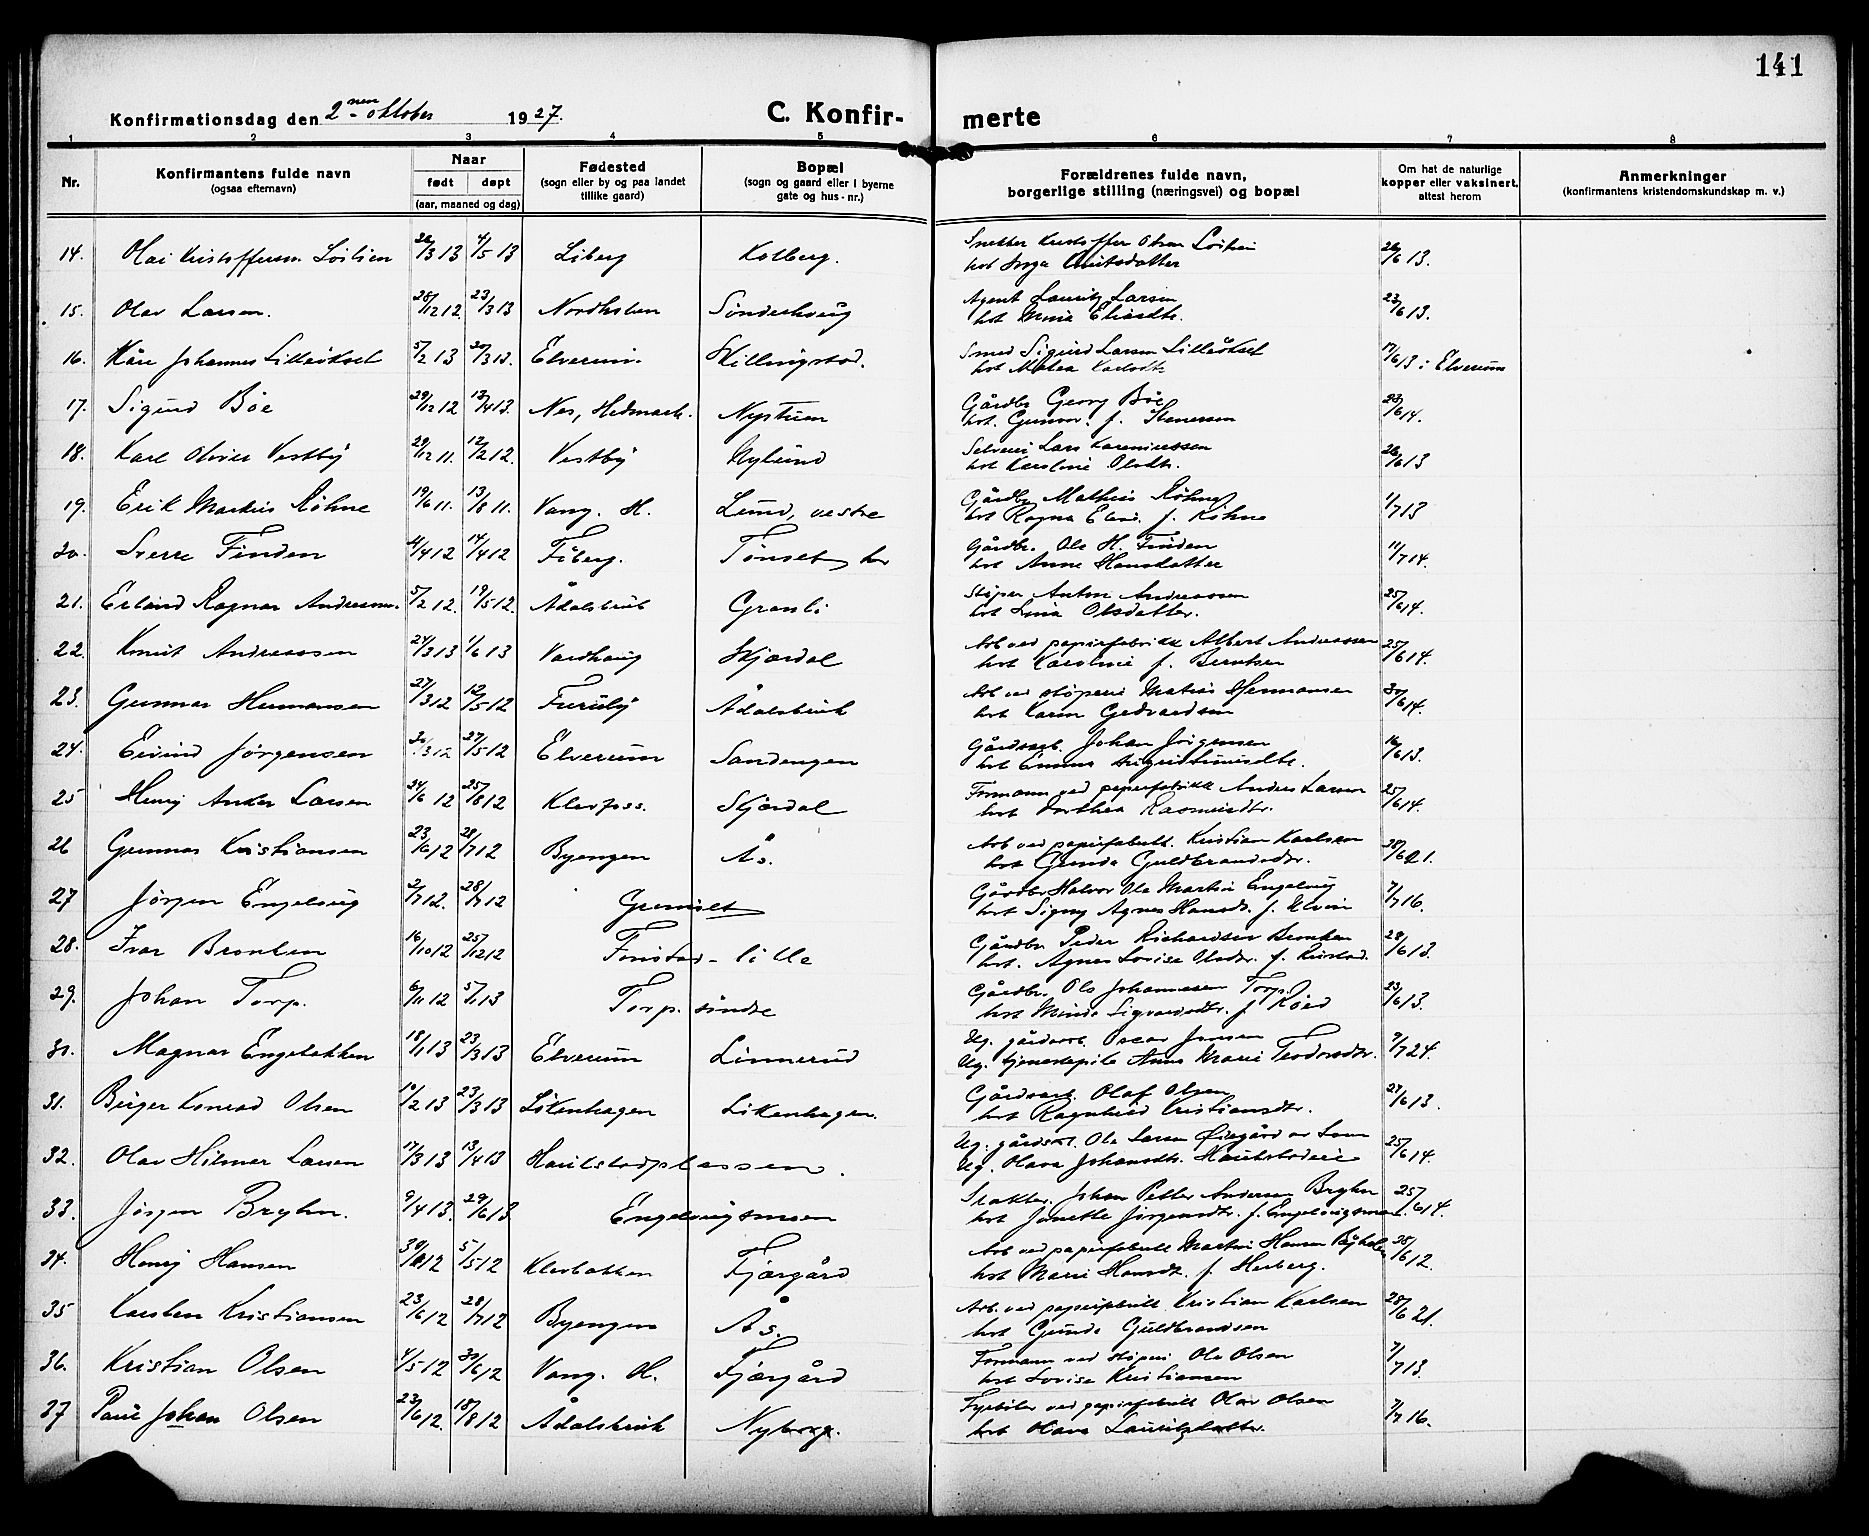 141
Konfirmationsdag den 2nen oktober 1927.
C. Konfir- merte
1 2 3 4 5 6 7 8
Nr.
Konfirmantens fulde navn
(ogsaa efternavn)
Naar
født døpt
(aar, maaned og dag)
Fødested
(sogn eller by og paa landet
tillike gaard)
Bopæl
(sogn og gaard eller i byerne
gate og hus-nr.)
Forældrenes fulde navn,
borgerlige stilling (næringsvei) og bopæl
Om hat de naturlige
kopper eller vaksinert,
attest herom
Anmerkninger
(konfirmantens kristendomskundskap m. v.)
14. Olai Kristoffersen 4/5 13 Liberg Kolberg. Snekker Kristoffer Olsen
hst Inga Knutsdatter 26/6 13.
15. Olav Larsen. 28/12 12 23/3 13 Agent Lauritz Larsen
hst 23/6 13.
16. Kåre Johannes Lilleåkset 5/2 13 Elverum. Skillingstad. Smed Sigurd Larsen Lilleåkset
hst 17/6 13 i Elverum
17. Sigurd Bøe 29/12 12 13/4 13. Nes, Hedmark. Nystuen Gårdbr. Georg Bøe
hst. Gunvor f. Stenersen 23/6 14.
18. Karl Oliver Vestby 29/12 11. 12/2 12. Vestby Nylund Selveier Lars
hst Karoline Olsdtr. 26/6 13
19. Erik Martin Røhne 19/6 11. 13/8 11. Vang. H. Lund, vestre Gårdbr Mathias Røhne
hst Ragna f. Røhne 1/7 13
20. Sverre Finden 4/4 12 14/4 12 Fåberg. Tønset, her Gårdbr. Ole H. Finden
hst Anne Hansdatter 11/7 14.
21. Erland Ragnar Andreassen. 5/2 12. 19/5 12. Ådalsbruk Granli Støper Anton Andreassen
hst Olsdatter. 25/6 14.
22. Knut Andreassen 24/3 13 1/6 13 Vardhaug Skjærdal Arb. ved papirfabrikk Albert Andreassen
hst Karoline f. Berntsen 25/6 14.
23. Gunnar Hermansen 27/3 12 12/5 12 Furuby Ådalsbruk Arb ved støperi Matias Hermansen
hst Karen Gedvardsen 30/6 14.
24. Eivind Jørgensen 27/5 12 Elverum Sandengen Gårdsarb. Johan Jørgensen
hst Emma 16/6 13.
25 Henry Anker Larsen 24/6 12 25/8 12 Klevfoss. Skjærdal Formann ved papirfabrikk Anders Larsen
hst Dorthea Rasmusdtr. 25/6 14.
26 Gunnar Kristiansen 23/6 12 28/7 12 Byengen Ås. Arb ved papirfabrikk. Kristian Karlsen
hst Gunda Guldbrandsdtr. 28/6 21.
27 Jørgen Engelaug 2/7 12. 28/7 12 Grønset Gårdbr Halvor Ole Martin Engelaug
hst Signy Agnes Hansdtr. f. 7/7 16.
28. Ivar Bronken 16/10 12 25/12 12 Finstad - lille Gårdbr Peder Richardsen Bronken
hst. Agnes Lovise Olsdtr. f. Finstad. 28/6 13.
29. Johan Torp. 6/11 12 5/1 13 Torp. søndre Gårdbr. Ole Johannesen Torp.
hst Minda Sigvardsdtr. f. 23/6 13.
30. Magnar Engebakken 18/1 13 23/3 13 Elverum Linnerud Ug. gårdsarb. Oscar Jensen
Ug. tjenestepike Anna Marie Teodorsdtr. 9/7 24.
31. Birger Konrad Olsen 10/2 13 23/3 13 Løkenhagen Løkenhagen. Gårdsarb. Olaf Olsen
hst Ragnhild Kristiansdtr. 27/6 13.
32. Olav Hilmar Larsen 17/3 13 13/4 13 Haukstadplassen. Ug. gårdskl. Ole Larsen Øiegård av Lom
Ug. Olava Johansdtr. Haukstadeie 25/6 14.
33. Jørgen Bryhn. 9/4 13. 29/6 13 Engelaugsmoen Slakter. Johan Petter Andersen Bryhn
hst Janette Jørgensdtr. f. Engelaugsmoen. 25/6 14.
34. Henry Hansen 5/5 12 Klevbakken Fjærgård Arb ved papirfabrikk Martin Hansen
hst Marie Hansdt. f. Herberg. 28/6 12.
35 Karsten Kristiansen 23/6 12 28/7 12 Byengen Ås. Arb. ved papirfabrikk Kristian Karlsen
hst Gunda Guldbrandsen 28/6 21.
36. Kristian Olsen 4/5 12 30/6 12 Vang. H. Fjærgård Formann ved støperi Ole Olsen
hst Lovise Kristiansen 7/7 13
37 Paul Johan Olsen 23/6 12. 18/8 12 Ådalsbruk Nyborg. Fyrbøter ved papirfabrikk Olav Olsen
hst Olava Lauritzdatter. 7/7 16.